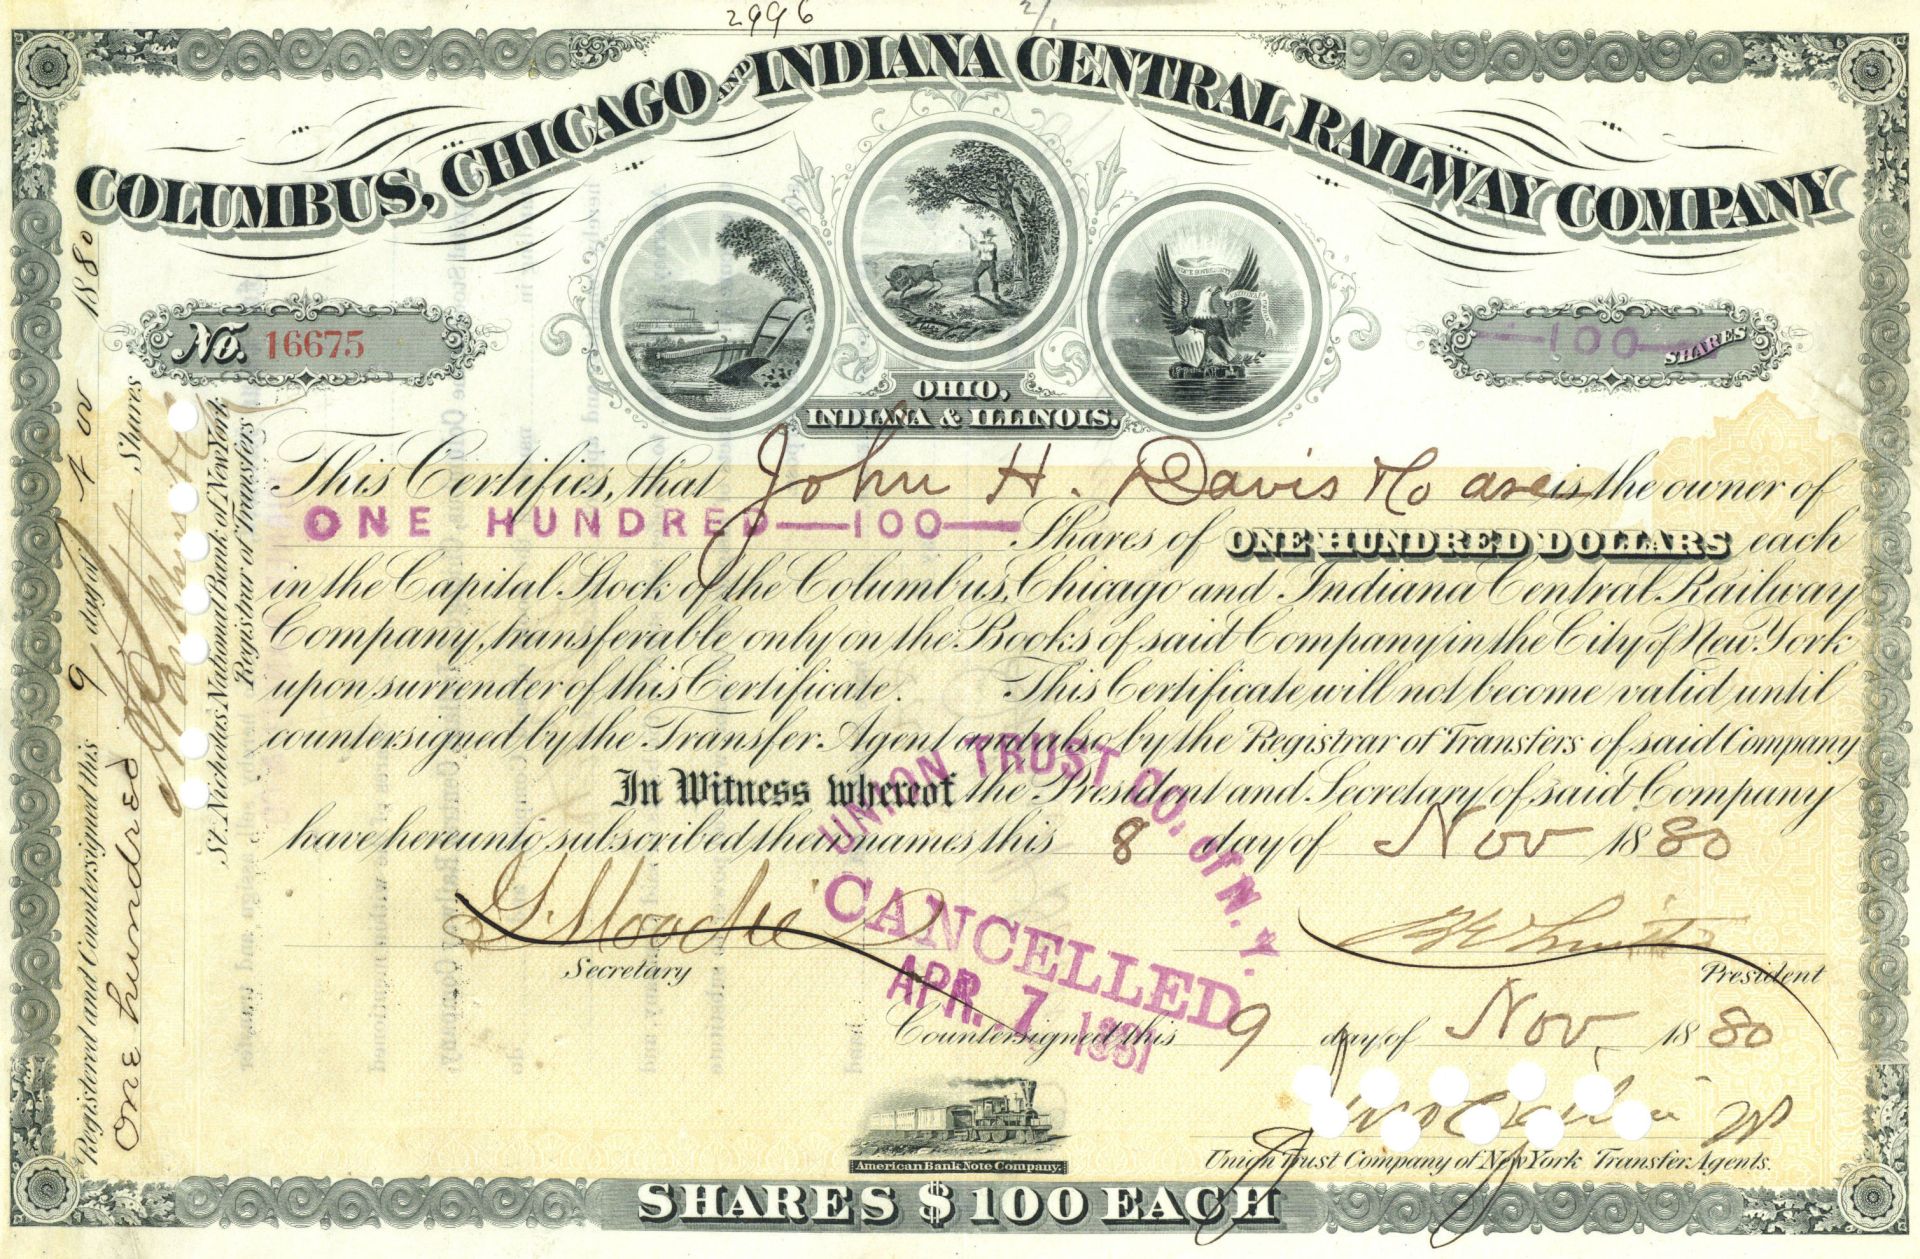 2996
COLUMBUS, CHICAGO AND INDIANA CENTRAL RAILWAY COMPANY
No. 16675
OHIO,
INDIANA & ILLINOIS.
100 SHARES
This Certifies, that John H. Davis & Co are is the owner of
ONE HUNDRED—100— Shares of ONE HUNDRED DOLLARS each
in the Capital Stock of the Columbus, Chicago and Indiana Central Railway
Company, transferable only on the Books of said Company in the City of New York
upon surrender of this Certificate. This Certificate will not become valid until
countersigned by the Transfer Agent and also by the Registrar of Transfers of said Company
In Witness whereof the President and Secretary of said Company
have hereunto subscribed their names this 8 day of Nov 1880
G. Moodie
Secretary
President
UNION TRUST CO. OF N. Y.
CANCELLED
APR. 7 1881
Countersigned this 9 day of Nov. 1880
Union Trust Company of New York Transfer Agents.
American Bank Note Company.
SHARES $100 EACH
Registered and Countersigned this 9 day of Nov 1880
One hundred Shares
St. Nicholas National Bank of New York
Registrar of Transfers